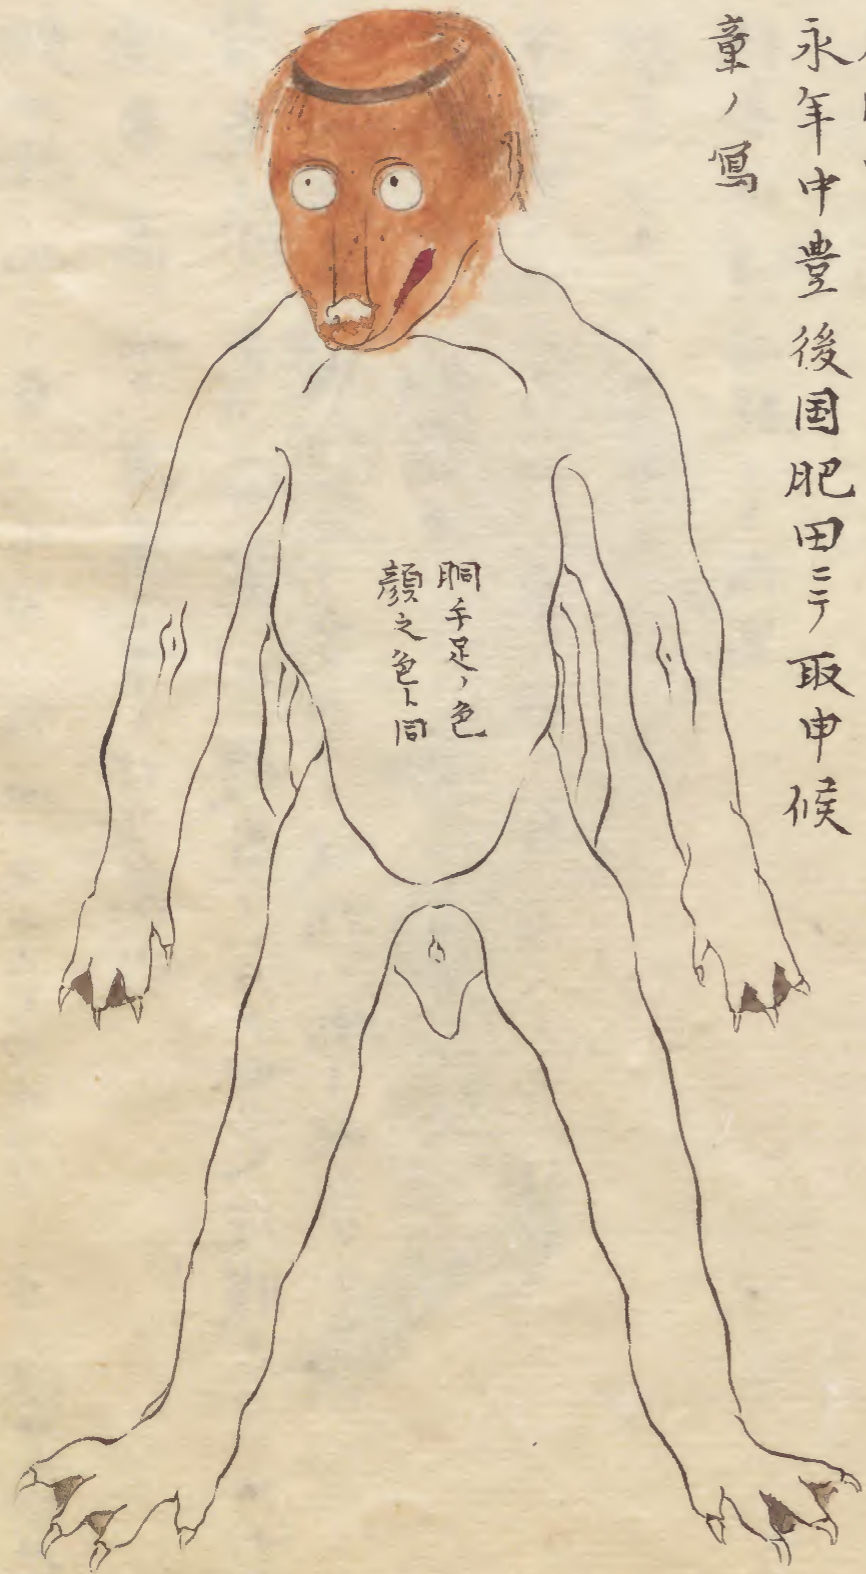 永年中豊後国肥田ニテ取申候
童ノ寫
胴手足ノ色
顔之色ト同